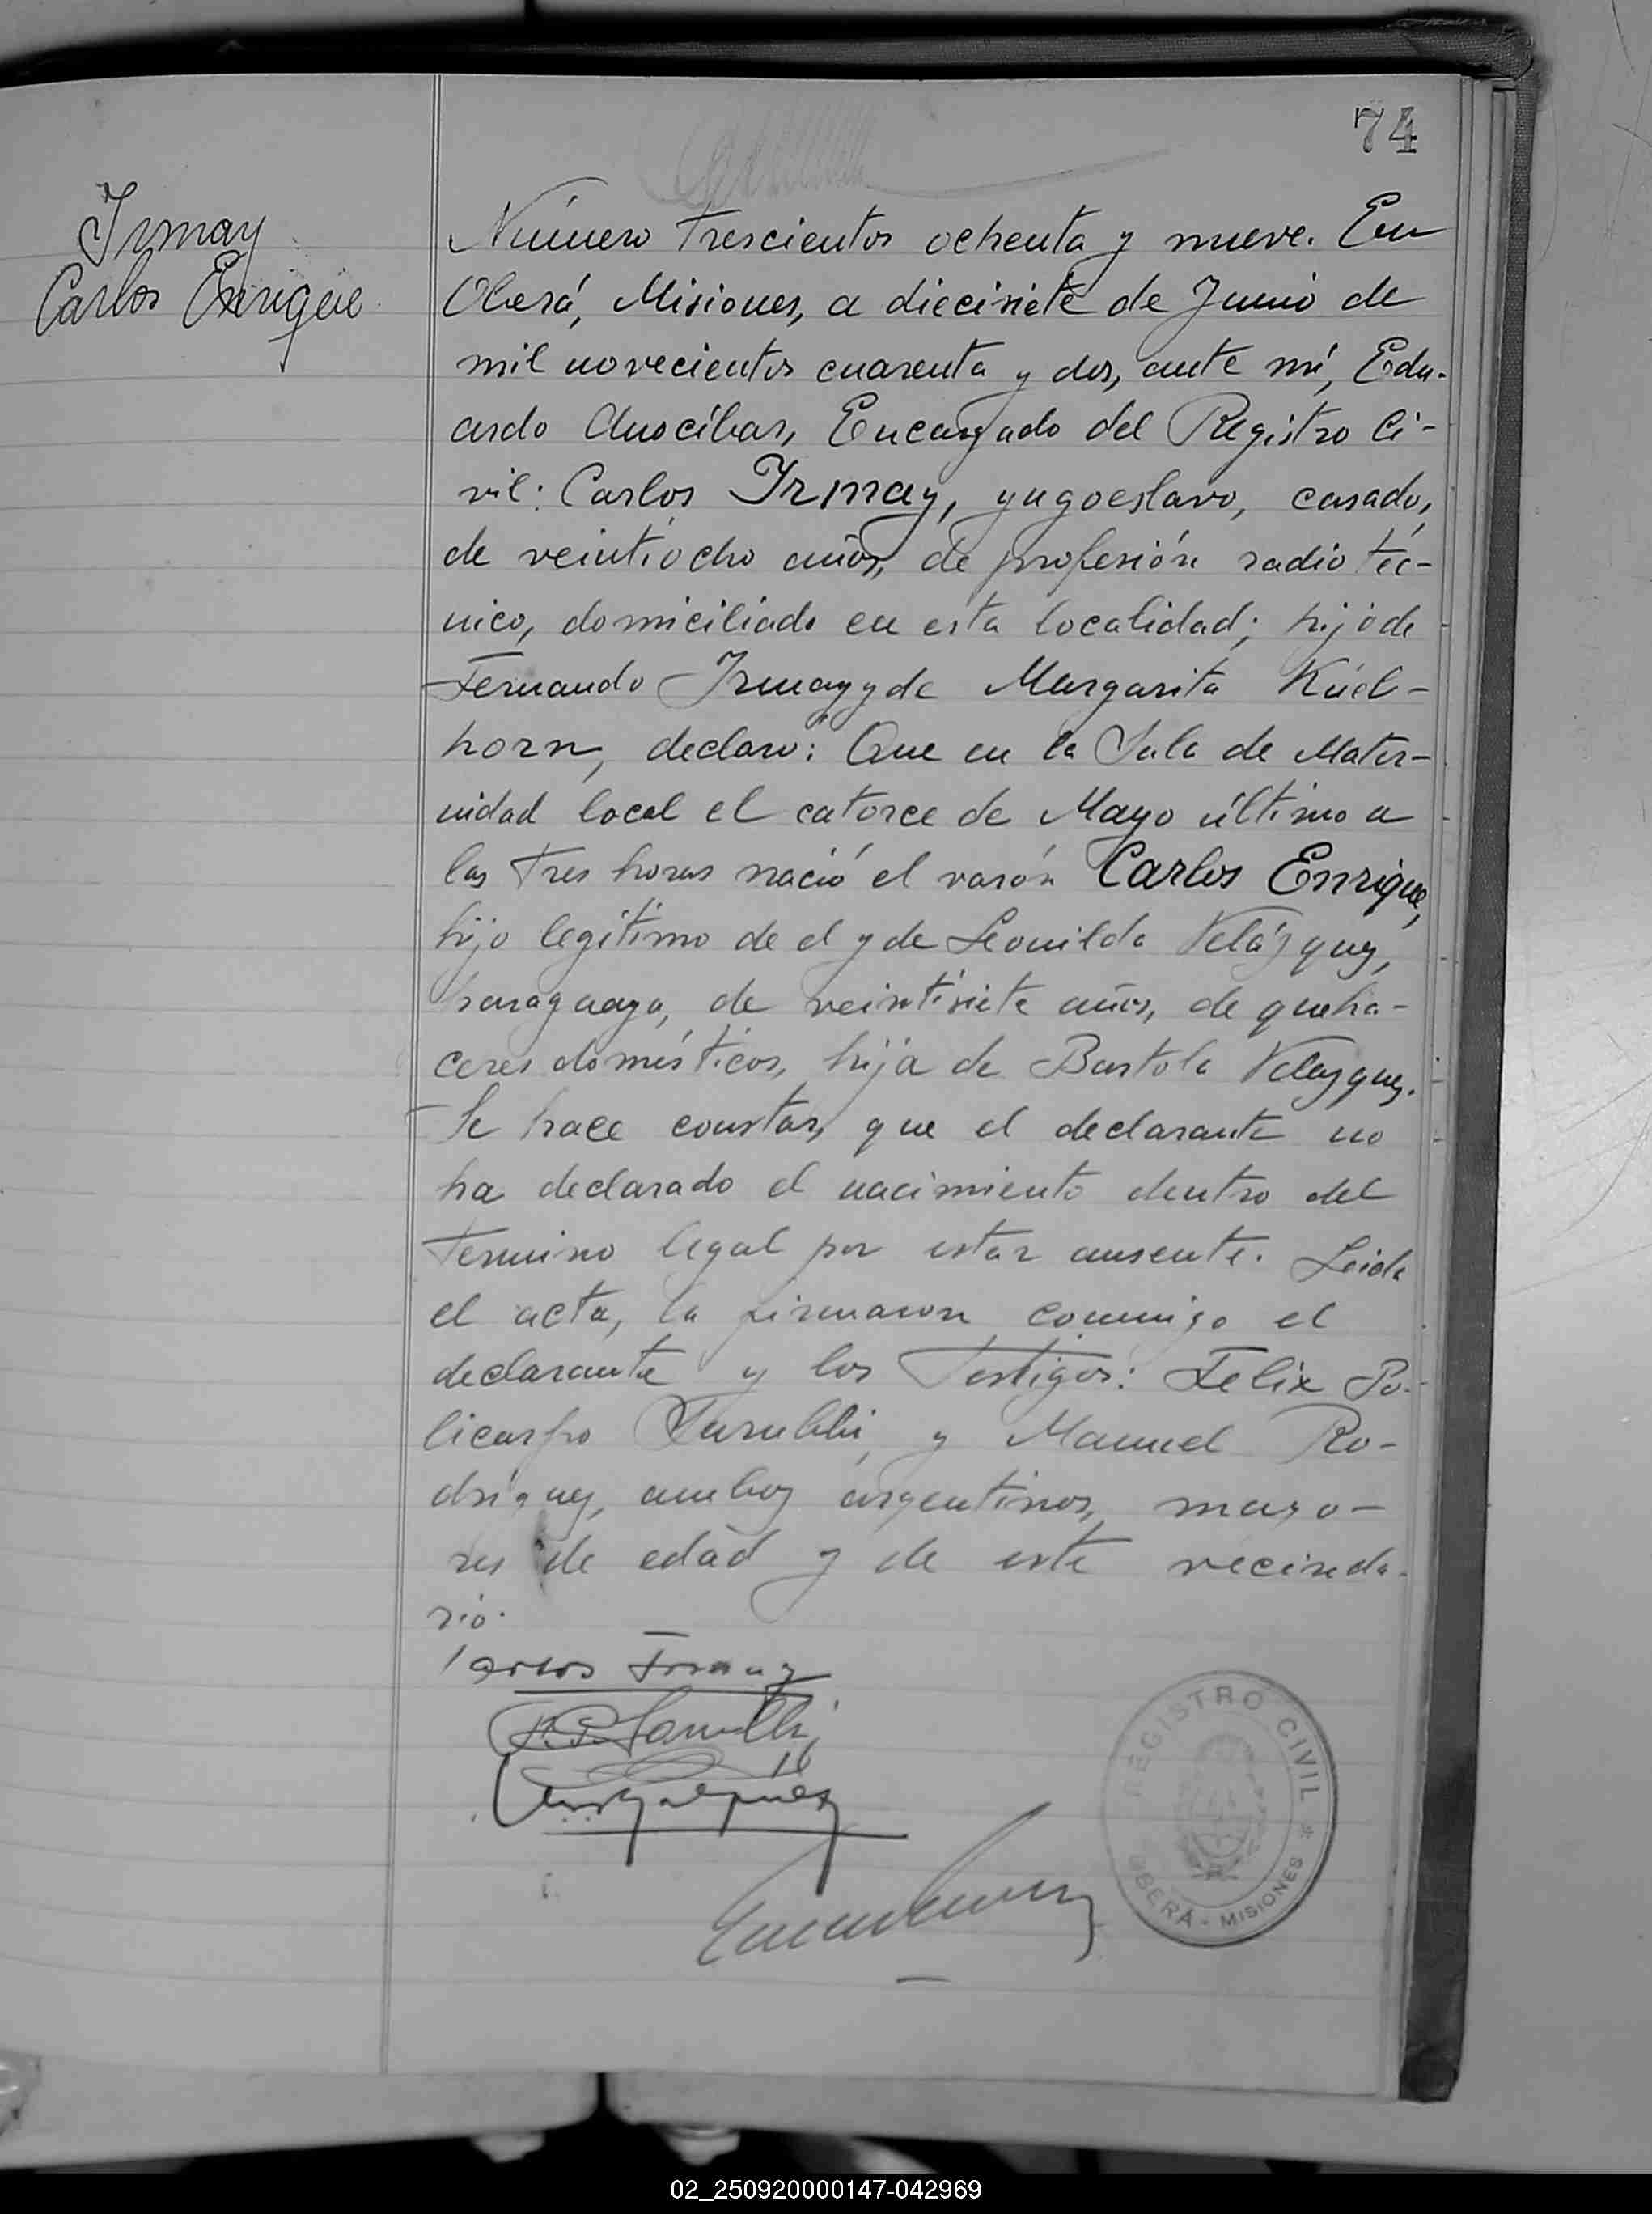 74
Irmay
Carlos Enrique
Número trescientos ochenta y nueve. En
Oberá, Misiones, a diecisiete de Junio de
mil novecientos cuarenta y dos, ante mí, Edu-
ardo Anocíbar, Encargado del Registro Ci-
vil: Carlos Irmay, yugoeslavo, casado,
de veintiocho años, de profesión radio téc-
nico, domiciliado en esta localidad; hijo de
Fernando Irmay y de Margarita Küel-
horn, declaro: Que en la Sala de Mater-
nidad local el catorce de Mayo último a
las tres horas nació el varón Carlos Enrique,
hijo legítimo de el y de Leonilda Velázquez,
paraguaya, de veintisiete años, de queha-
ceres domésticos, hija de Bartola Velazquez.
Se hace constar, que el declarante no
ha declarado el nacimiento dentro del
termino legal por estar ausente. Leida
el acta, la firmaron conmigo el
declarante y los Testigos: Felix Po-
licarpo y Manuel Ro-
dríguez, ambos argentinos, mayo-
res de edad y de este vecinda-
rio.
Carlos Irmay
REGISTRO CIVIL
OBERÁ - MISIONES
02_250920000147-042969